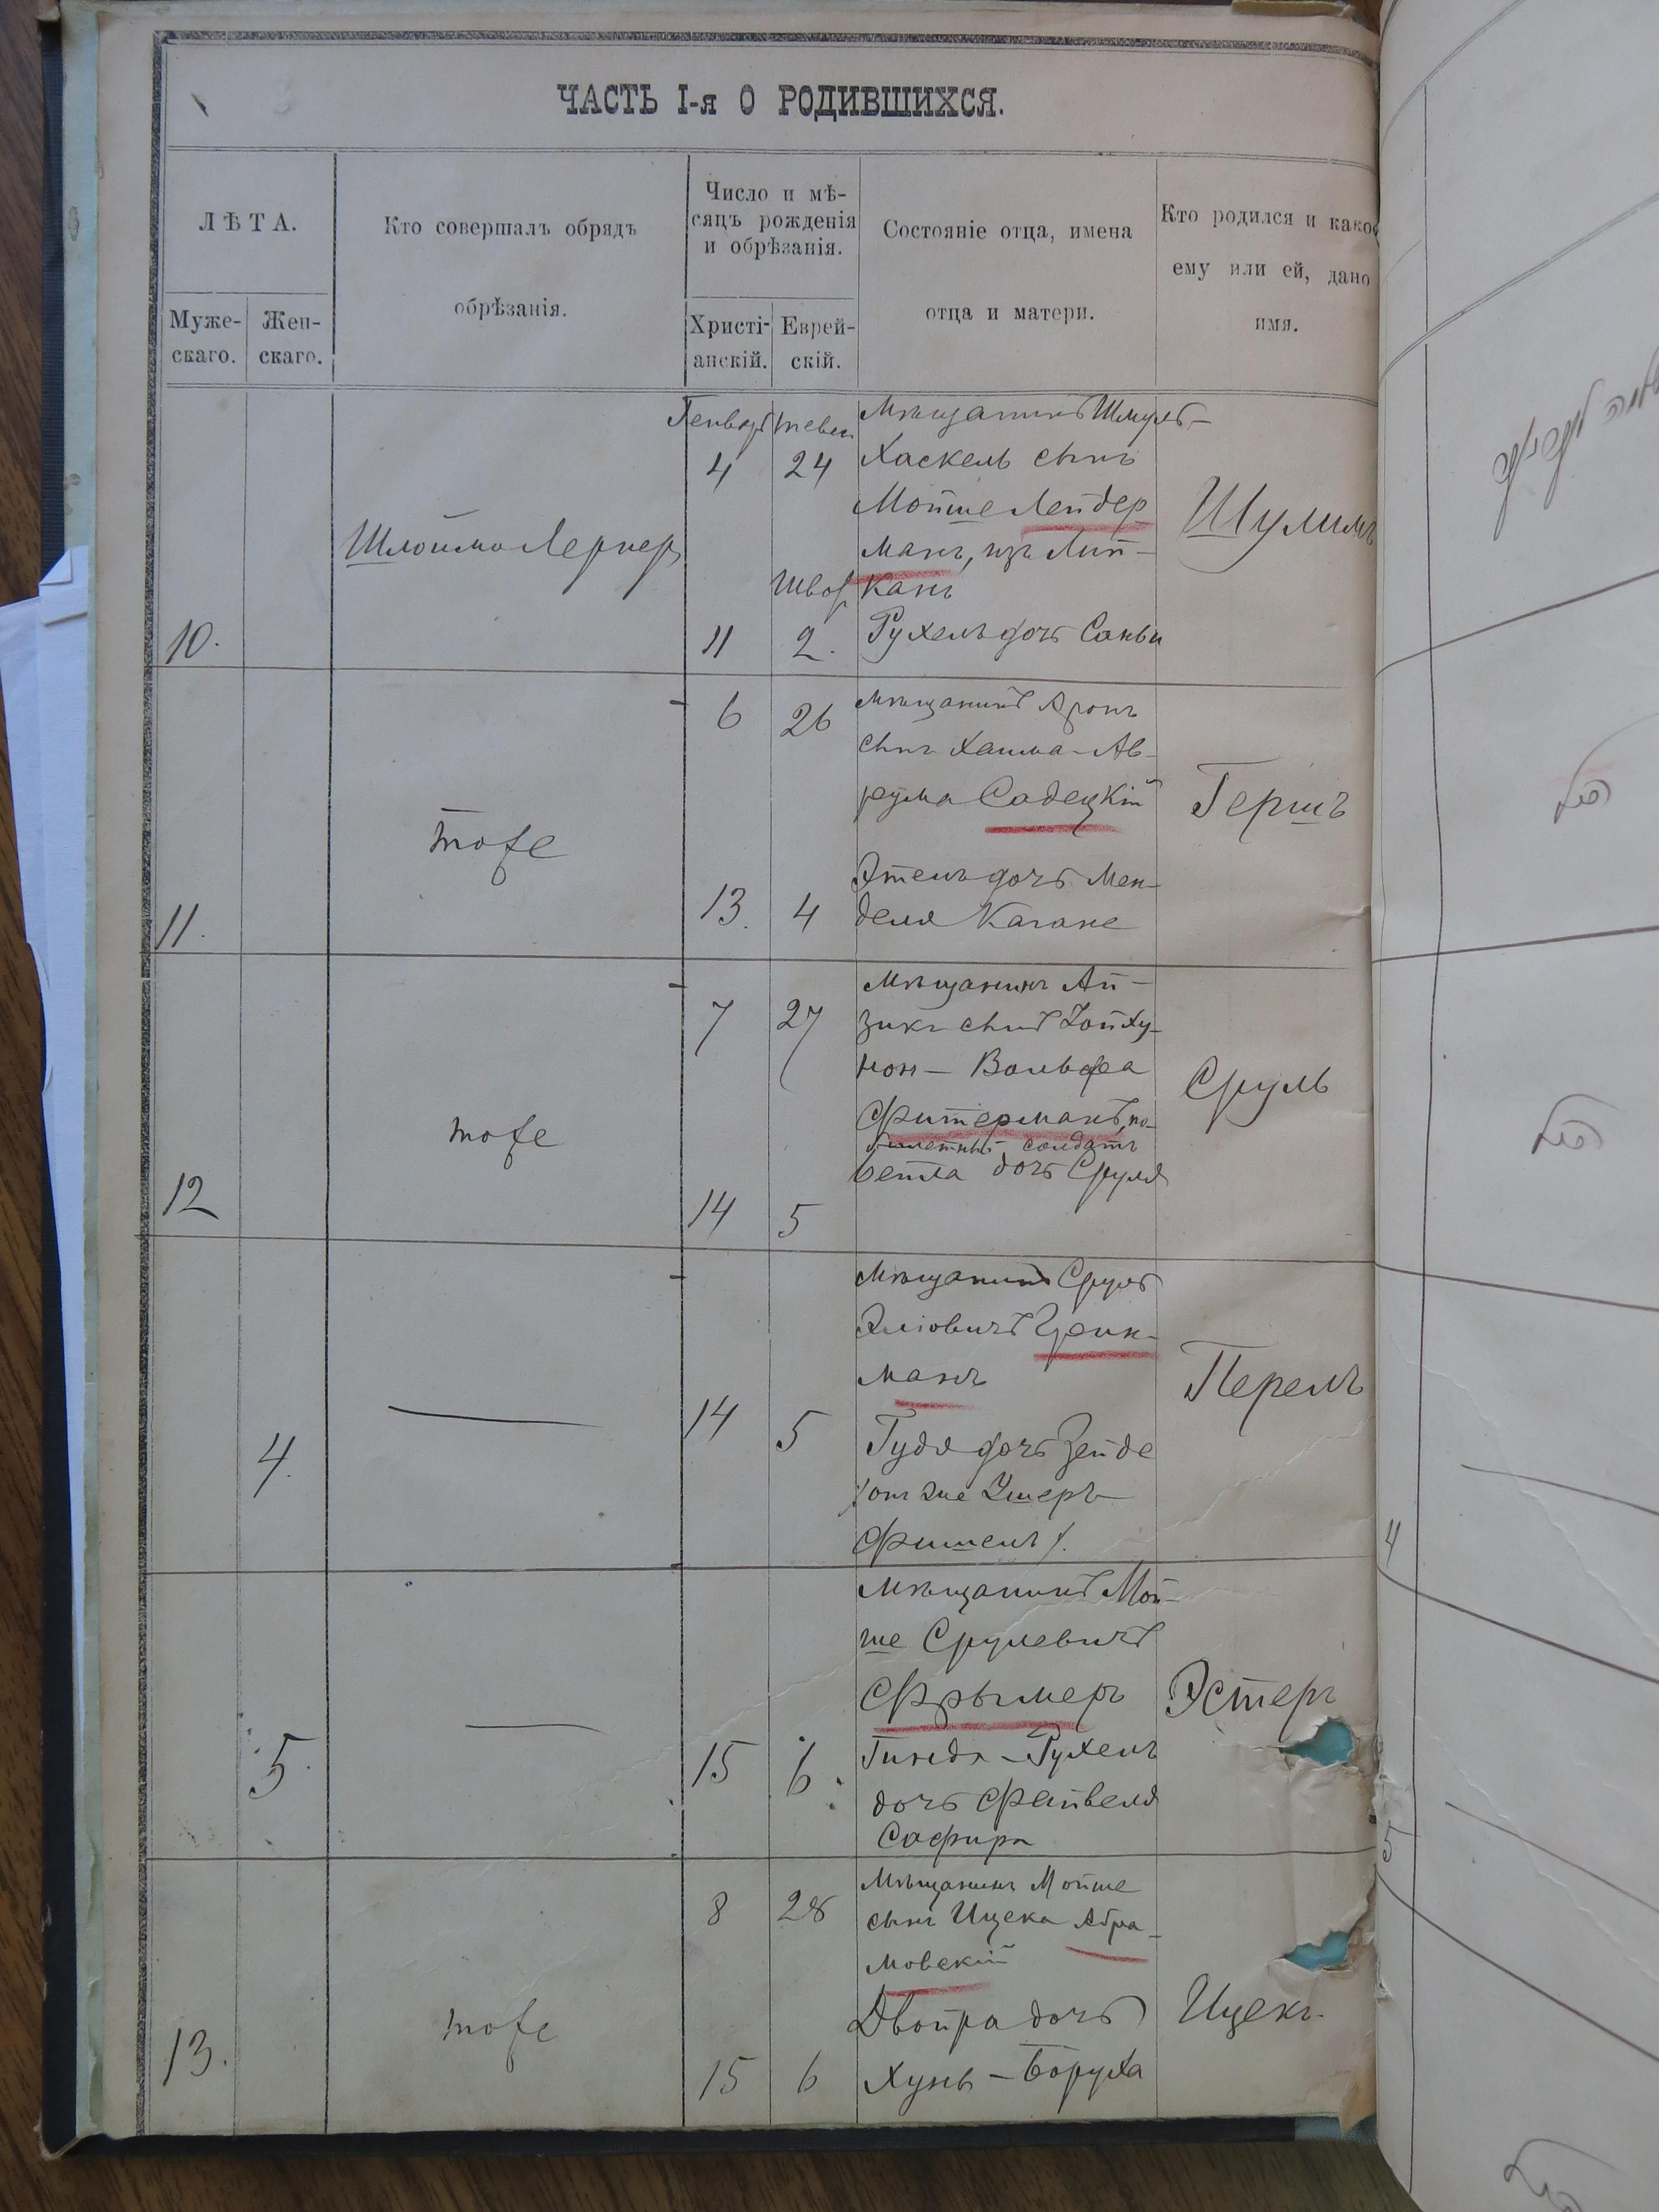 ЧАСТЬ I-я О РОДИВШИХСЯ.
ЛѢТА.
Муже-
скаго.
Жен-
скаго.
Кто совершалъ обрядъ
обрѣзанія.
Число и мѣ-
сяцъ рожденія
и обрѣзанія.
Христі-
анскій.
Еврей-
скій.
Состояніе отца, имена
отца и матери.
Кто родился и какое
ему или ей, дано
имя.
10.
Шлойма Лернер
Генварь
4
11
тевес
24
Швот
2.
Мѣщанинъ Шмуль-
Хаскель сынъ
Мойше Лейдер
манъ, изъ Лип-
канъ
Рухель дочь Саньи
Шулимъ
11.
тоже
6
13.
26
4
Мѣщанинъ Аронъ
сынъ Хаима-Ав-
рума Садецкій
Этель дочь Мен-
деля Кагане
Гершъ
12
тоже
7
14
27
5
Мѣщанинъ Ай-
зикъ сынъ
нон - Вольфа
Фитерманъ,
солдатъ
Бейла дочь Сруля
Сруль
4.
14
5
Мѣщанинъ Сруль
Эліовичъ Цейк-
манъ
Гудя дочь Зейде
/онъ же Ушеръ
Фишель/.
Перель
5.
15
6.
Мѣщанинъ Мой-
ше Срулевичъ
Фрымеръ
Гиндя-Рухель
дочь Файвеля
Сафира
Эстеръ
13.
тоже
8
15
28
6
Мѣщанинъ Мойше
сынъ Ицека Абра-
мовскій
Двойра дочь
Хунь-Боруха
Ицекъ.
4
5